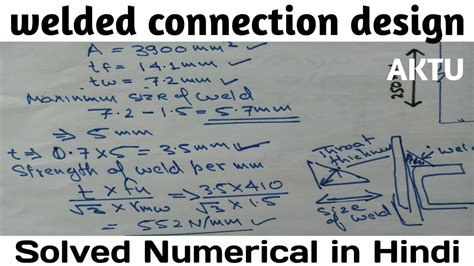 welded connection design
A = 3900mm²
tf = 14.1mm
tw = 7.2mm
Maximum size of weld
7.2 - 1.5 = 5.7mm
⇒ 5 mm
t ⇒ 0.7×5 = 3.5mm
Strength of weld per mm
t × fu / √3 × γmw = 3.5×410 / √3 × 1.5
= 552 N/mm
AKTU
250
Throat
thickness
size
of weld
weld
Solved Numerical in Hindi